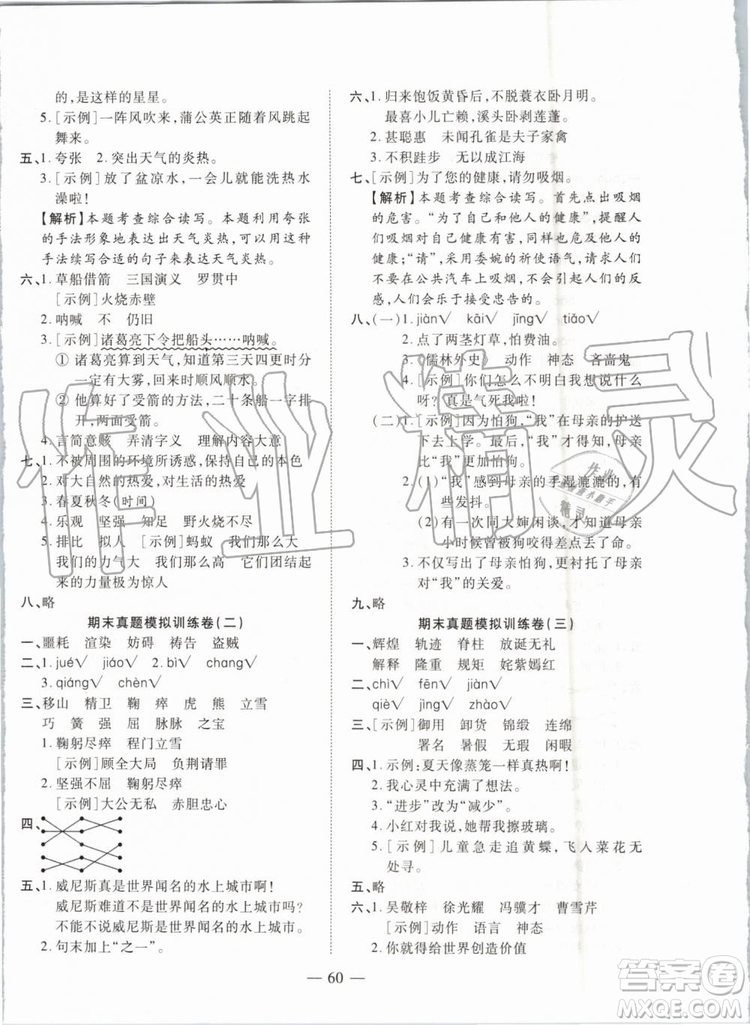 的,是这样的星星。
5. [示例]一阵风吹来,蒲公英正随着风跳起
舞来。
五、1. 夸张 2. 突出天气的炎热。
3. [示例]放了盆凉水,一会儿就能洗热水
澡啦!
【解析】本题考查综合读写。本题利用夸张
的手法形象地表达出天气炎热。用夸张的
手法续写合适的句子来表现天气炎热。
六、1. 草船借箭 三国演义 罗贯中
[示例]火烧赤壁
2. 呐喊 不 仍旧
3. [示例]诸葛亮下令把船头……呐喊。
① 诸葛亮算到天气,知道第三天四更时分
一定有大雾,回来时顺风顺水。
② 他算好了受箭的方法,二十条船一字排
开,两面受箭。
4. 言简意赅 弄清字义 明确大意
七、1. 不被周围的环境所诱惑,保持自己的本色
2. 对大自然的热爱,对生活的热爱
3. 春夏秋冬(时间)
4. 乐观 坚强 知足 野火烧不尽
5. 排比 拟人 [示例]蚂蚁 我们那么
小 我们力气不大 我们它们团结起
来的力量极为惊人
八、略
期末真题模拟训练卷(二)
一、噩耗 渲染 妨碍 祷告 盗贼
二、1. jué√ jiáo√ 2. bì√ chang√
3. qiáng√ chèn√
三、移山 精卫 鞠 瘁 虎 立雪
巧 簧 强 屈 脉脉 之宝
1. 鞠躬尽瘁 程门立雪
[示例]顾全大局 负荆请罪
2. 坚强不屈 鞠躬尽瘁
[示例]大公无私 赤胆忠心
四、
五、1. 威尼斯真是世界闻名的水上城市啊!
威尼斯难道不是世界闻名的水上城市吗?
不能不说威尼斯是世界闻名的水上城市。
2. 句末加上“之一”。
六、1. 归来饱饭黄昏后,不脱蓑衣卧月明。
最喜小儿亡赖,溪头卧剥莲蓬。
2. 甚聪惠 未闻孔雀是夫子家禽
3. 不积跬步 无以成江海
七、[示例]为了您的健康,请勿吸烟。
【解析】本题考查综合读写。首先点明吸烟
的危害。“为了自己和他人的健康”,提醒人
们吸烟不仅影响自己的健康,更影响他人的
健康;“请”,采用委婉的祈使语气,请求人们
不要在公共汽车上吸烟,这样不易引起人的
反感,人们会乐意接受。
八、(一)1. jiàn√ kāi√ jīng√ tiǎo√
2. 点了两茎灯草,怕费油。
3. 儒林外史 动作 神态 吝啬鬼
4. [示例]你们怎么不明白我想说什么
呀?真是气死我啦!
(二)1. [示例]因为怕狗,“我”在母亲的护送
下去上学。
2. (1)“我”感到母亲的手湿漉漉的,有
些发抖。
(2)有一次同大婶闲谈,才知道母亲
小时候曾被狗咬伤过,差点丢了命。
3. 不仅写出了母亲怕狗,更衬托了母亲
对“我”的关爱。
九、略
期末真题模拟训练卷(三)
一、辉煌 轨迹 脊柱 放诞无礼
解释 隆重 规矩 姹紫嫣红
二、chì√ fēn√ liàn√
qiè√ jīng√ zhào√
三、[示例]御用 卸货 锦缎 连绵
署名 暑假 无瑕 闲暇
四、1. 示例:夏天像蒸笼一样真热啊!
2. 我心灵中充满了想法。
3. “进步”改为“减少”。
4. 小红对我说,她帮我擦玻璃。
5. [示例]儿童急走追黄蝶,飞入菜花无
处寻。
五、略
六、1. 吴敬梓 徐光耀 冯骥才 曹雪芹
[示例]动作 语言 神态
2. 你就得给世界创造价值
— 60 —
作业精灵
答案圈
MXQE.COM